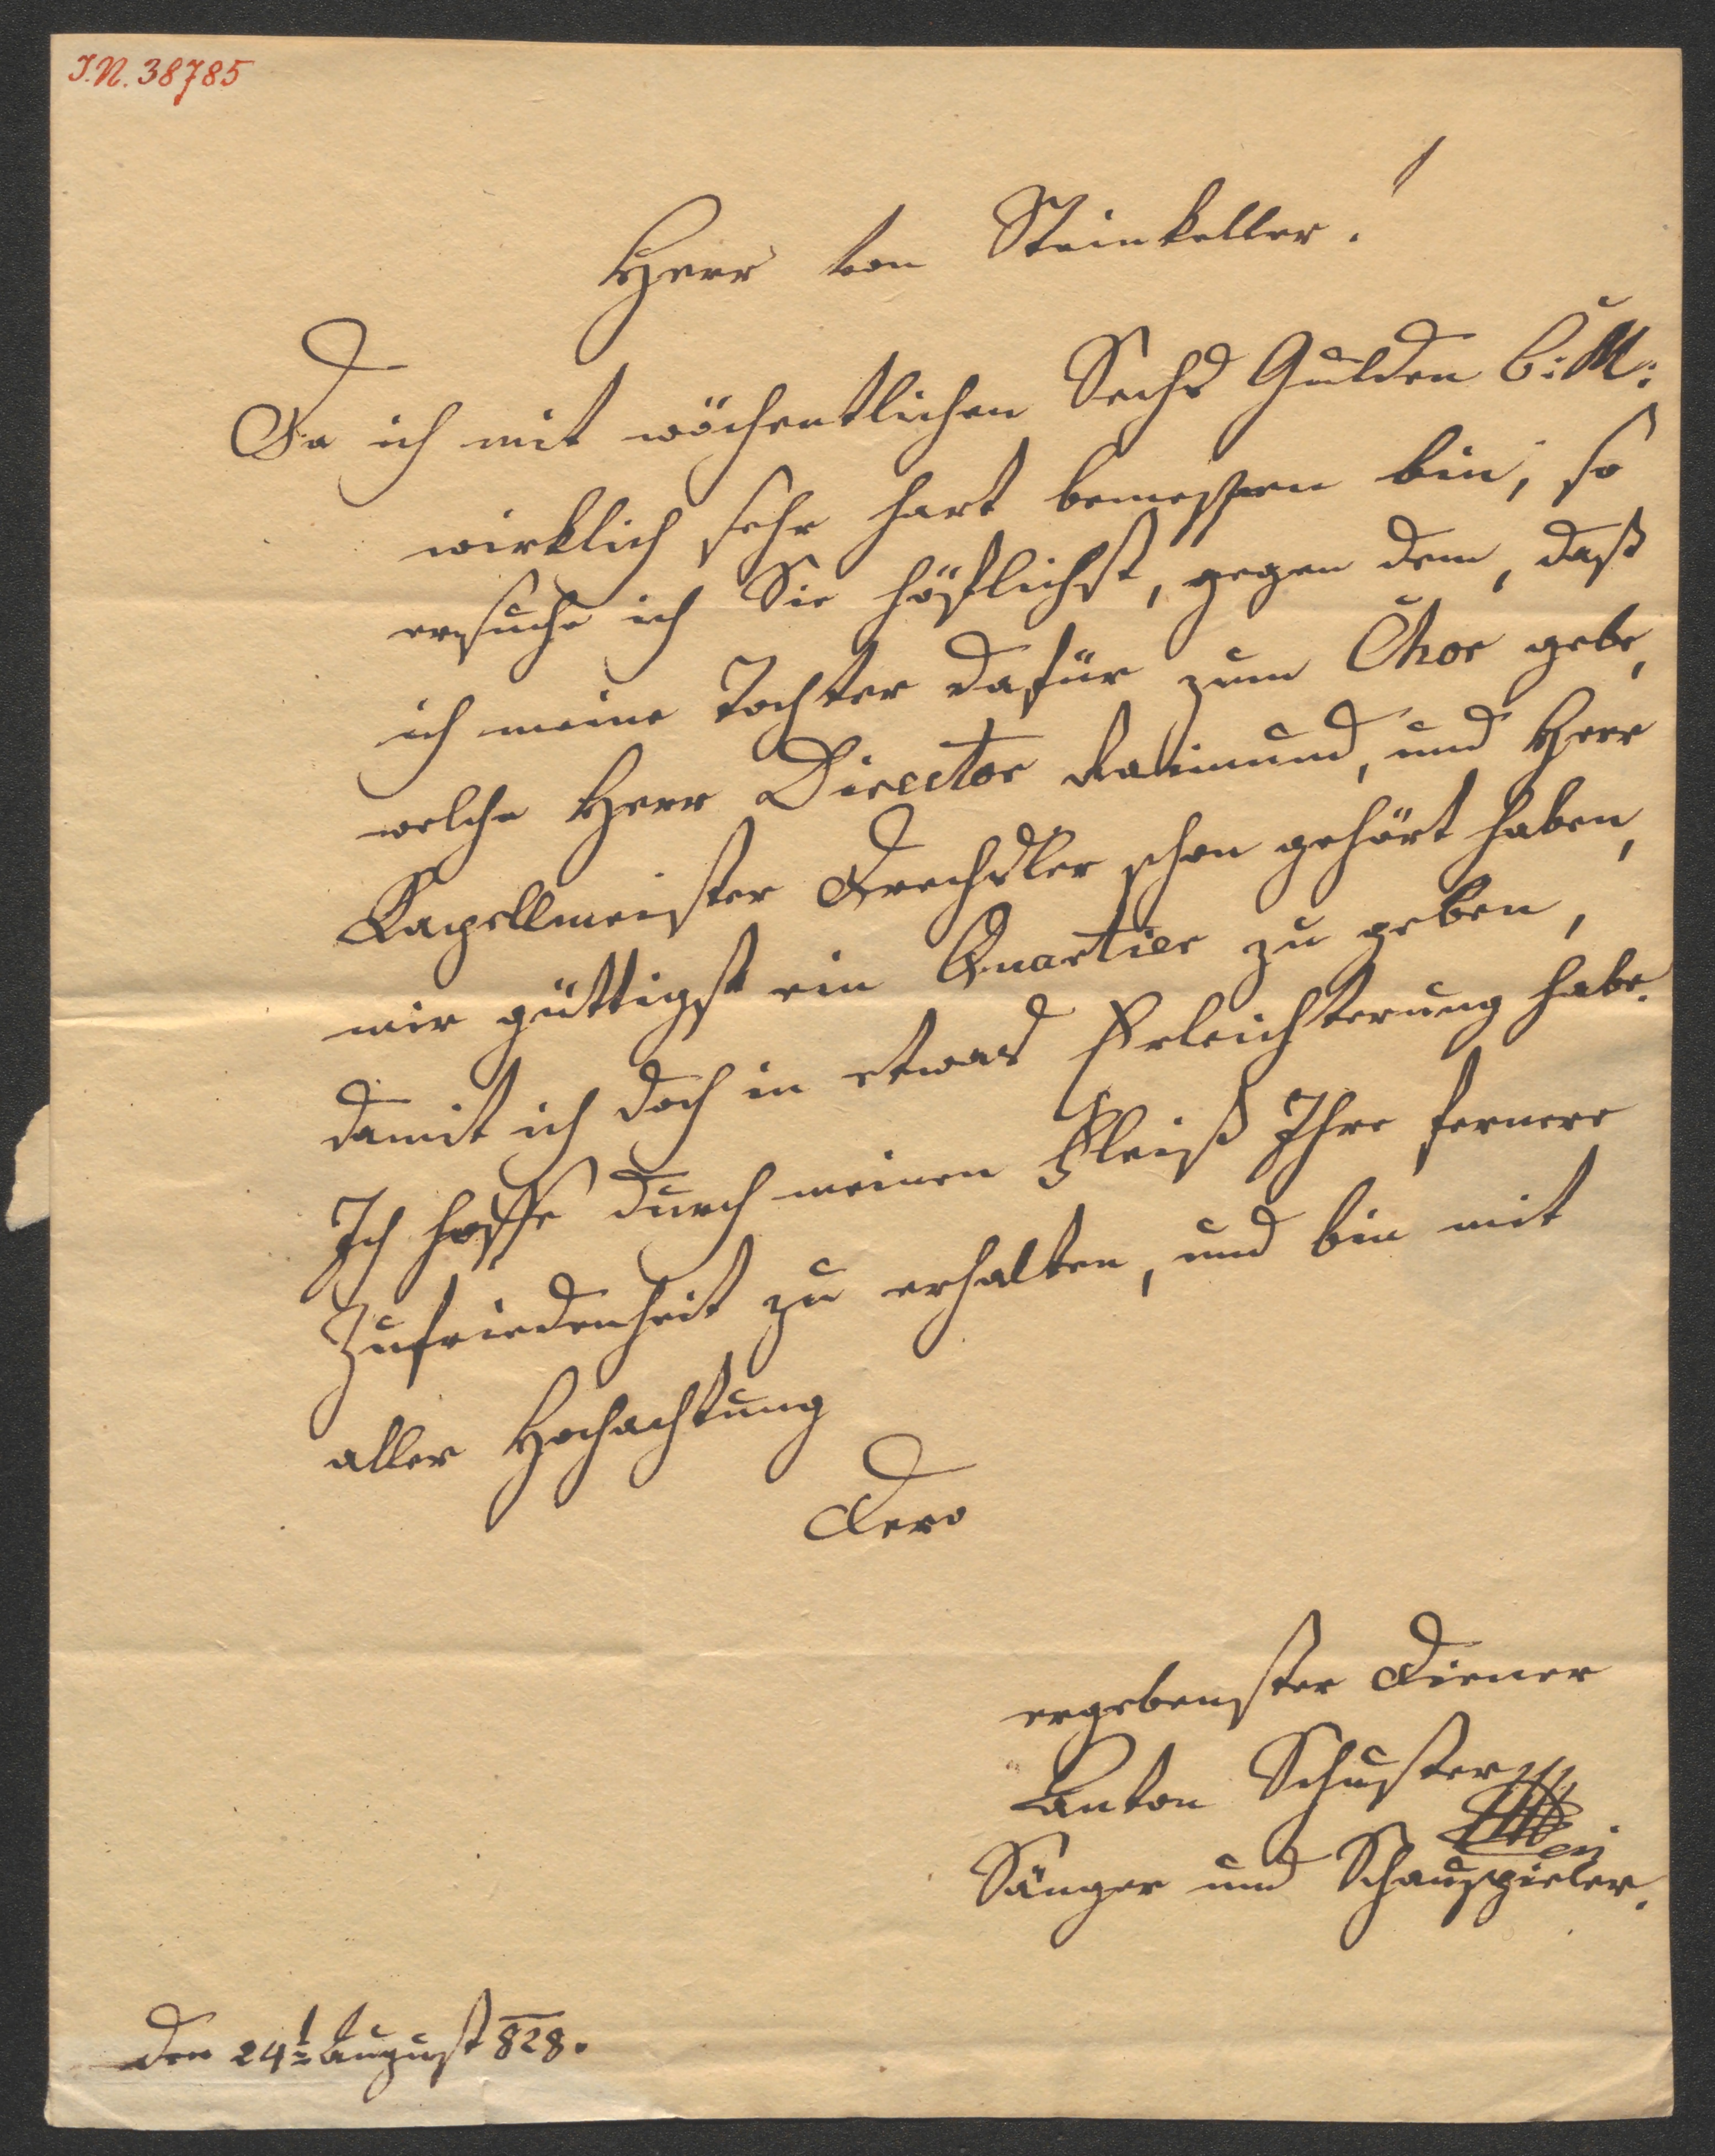 I.N. 38785
Herr von Steinkeller!
Da ich mit wöchentlichen Sechs Gulden C: M:
wirklich sehr hart bemessen bin, so
ersuche ich Sie höflichst, gegen dem, daß
ich meine Tochter dafür zum Chor gebe,
welche Herr Director Raimund, und Herr
Kapellmeister Drechsler schon gehört haben,
mir güttigst ein Quartier zu geben,
damit ich doch in etwas Erleichterung habe.
Ich hoffe durch meinen Fleiß Ihre fernere
Zufriedenheit zu erhalten, und bin mit
aller Hochachtung
Dero
ergebenster Diener
Anton Schuster
Sänger und Schauspieler.
Den 24t August 828.